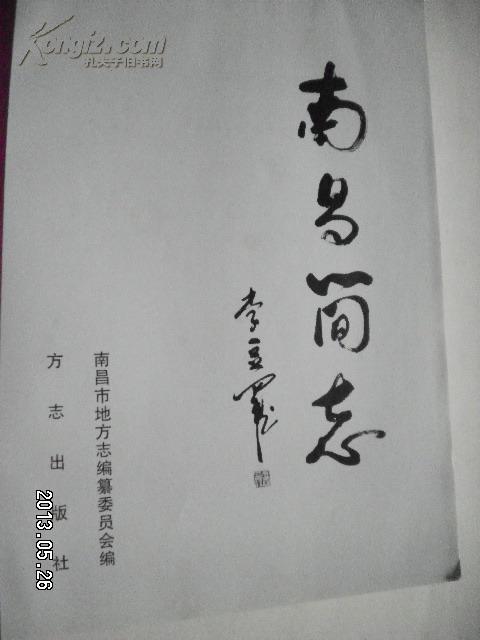 Kongfz.com
孔夫子旧书网
南昌简志
李豆罗
南昌市地方志编纂委员会编
方志出版社
2013.05.26